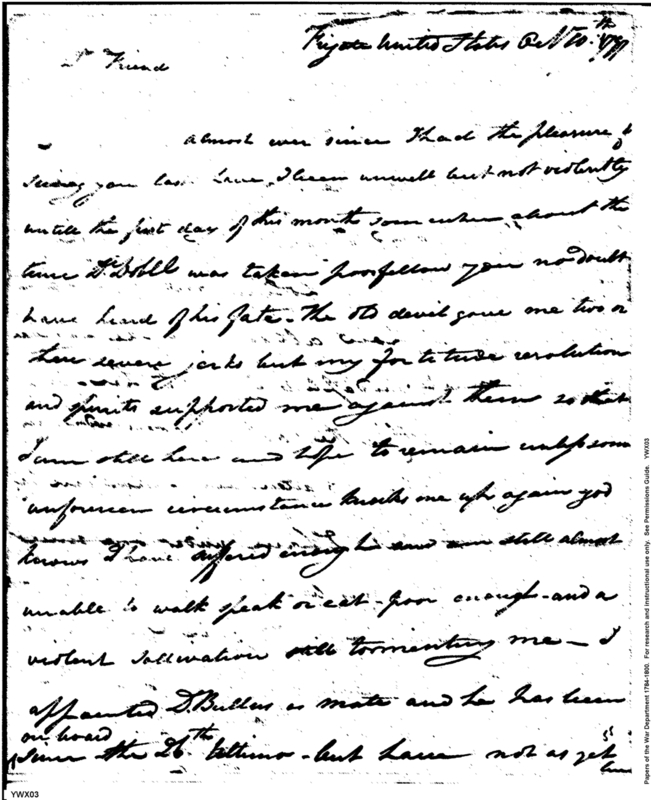 Frigate United States Oct 10th 1797
Dr Friend
almost ever since I had the pleasure of
seeing you last have I been unwell but not violently
untill the first day of this month som when about the
time Dr Dobll was taken poor fellow you no doubt
have heard of his fate - the old devil gave me two or
three severe jerks but my fortitude resolution
and spirits supported me against them so that
I am still here and hope to remain unless som
unforeseen circumstance knocks me up again god
knows I have suffered enough and am still almost
unable to walk speak or eat - poor enough - and a
violent sallivation still tormenting me - I
appointed D. Bullus as mate and he has been
on board
since the 26th Ultimo - but have not as yet
YWX03
Papers of the War Department 1784-1800. For research and instructional use only. See Permissions Guide. YWX03